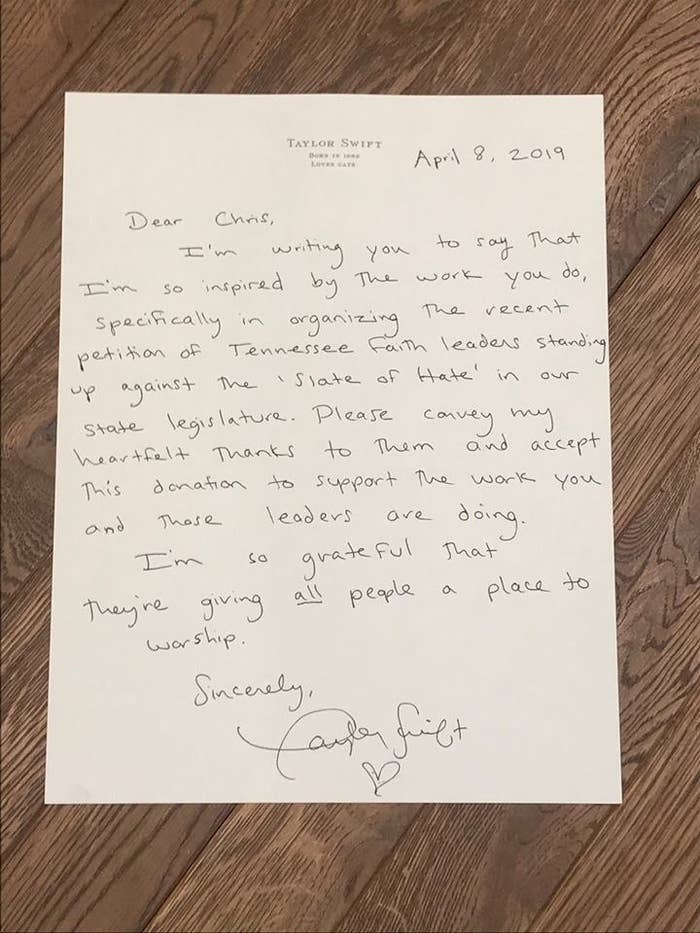 TAYLOR SWIFT
BORN IN 1989
LOVES CATS
April 8, 2019
Dear Chris,
I'm writing you to say that
I'm so inspired by the work you do,
specifically in organizing the recent
petition of Tennessee faith leaders standing
up against the 'Slate of Hate' in our
state legislature. Please convey my
heartfelt thanks to them and accept
this donation to support the work you
and those leaders are doing.
I'm so grateful that
they're giving all people a place to
worship.
Sincerely,
Taylor Swift